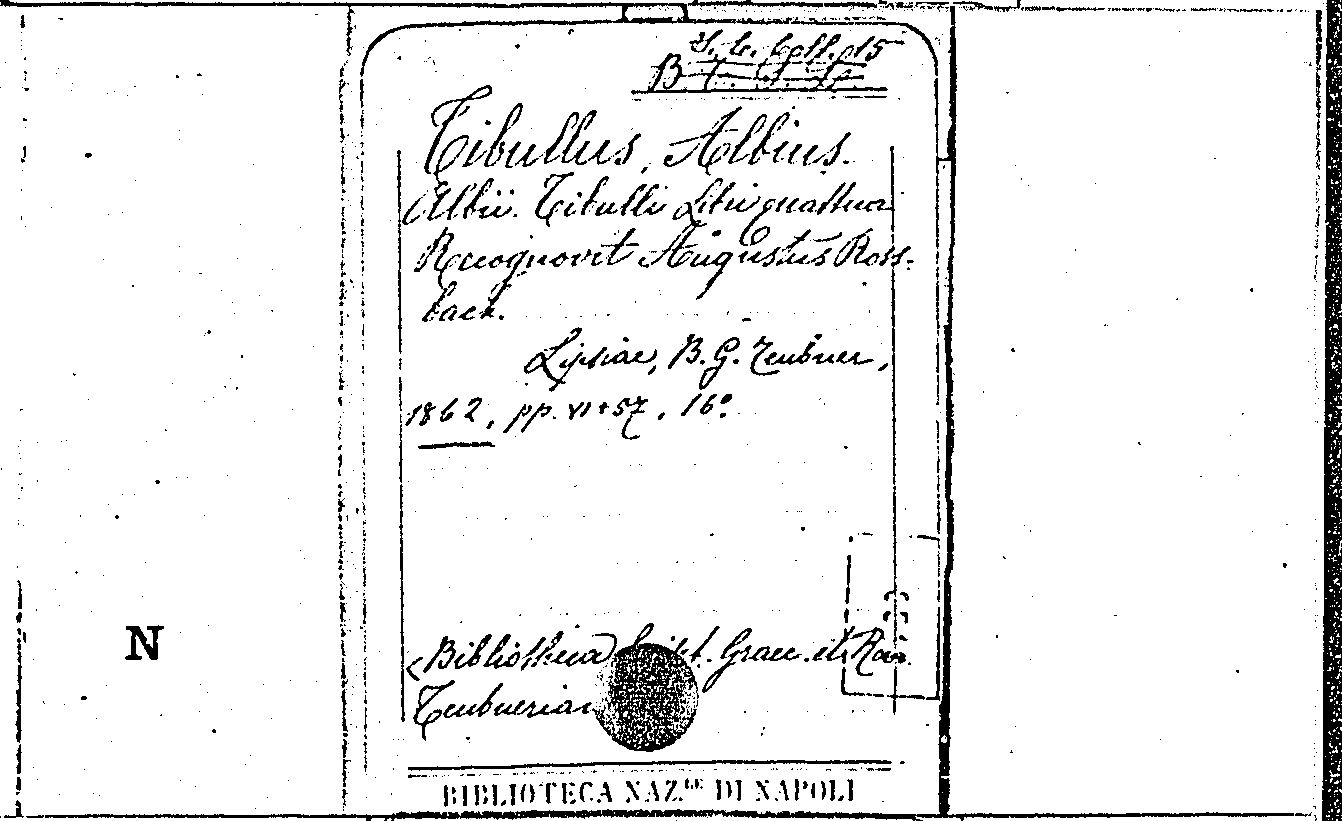 S. C. Coll. 215
B
Tibullus, Albius.
Albii Tibulli Libri quattuor
Recognovit Augustus Ross-
bach.
Lipsiae, B. G. Teubner,
1862, pp. VI+57, 16º
N
(Bibliotheca Script. Graec. et Rom.
Teubnerian
BIBLIOTECA NAZ.LE DI NAPOLI